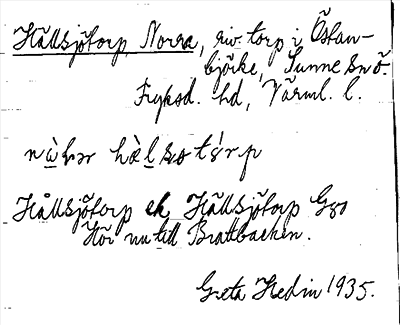 Hällsjötorp, Norra, riv. torp i Östan-
björke, Sunne sn ö.
Fryksd. hd, Värml. l.
Hållsjötorp ek Hällsjötorp Gso
Hör nu till Brattbacken.
Greta Hedin 1935.